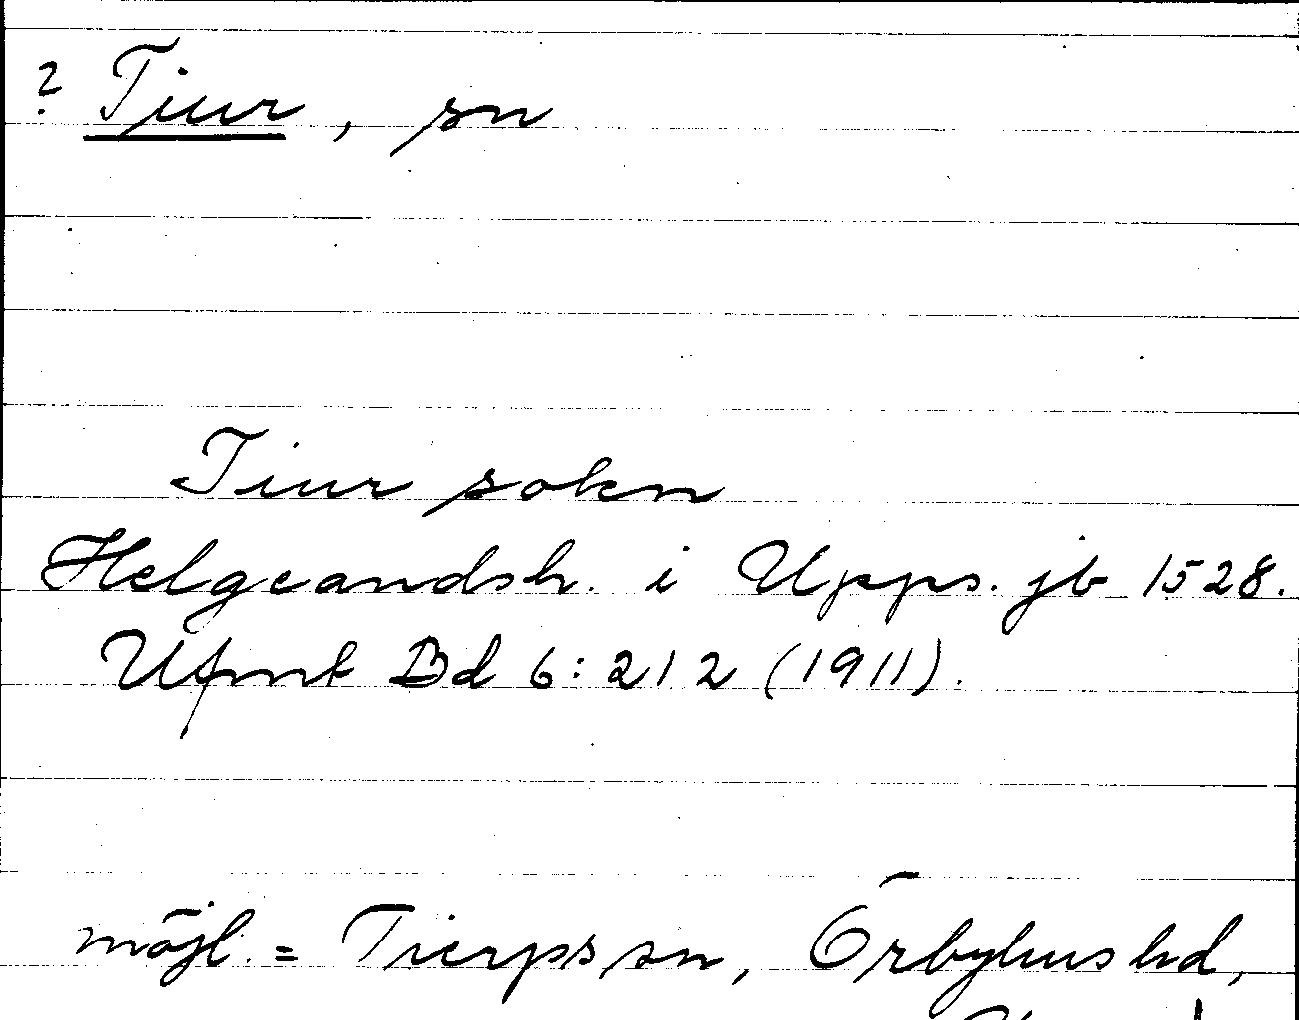 ? Tiur, sn
Tiur sokn
Helgeandsh. i Upps. jb 1528.
Ufmt Bd 6:212 (1911).
möjl. = Tierps sn, Örbyhus hd,